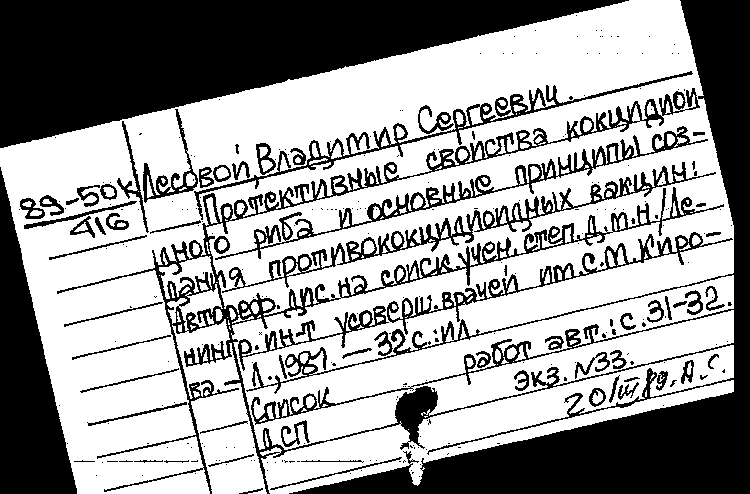 89-50к
416
Лесовой, Владимир Сергеевич.
Протективные свойства кокцидиои-
дного риба и основные принципы соз-
дания противококцидиоидных вакцин:
Автореф. дис. на соиск. учен. степ. д.м.н. / Ле-
нингр. ин-т усоверш. врачей им. С.М. Киро-
ва. - Л., 1987. - 32 с.: ил.
Список работ авт.: с. 31-32.
ДСП экз. N33.
20/III 89. А.С.